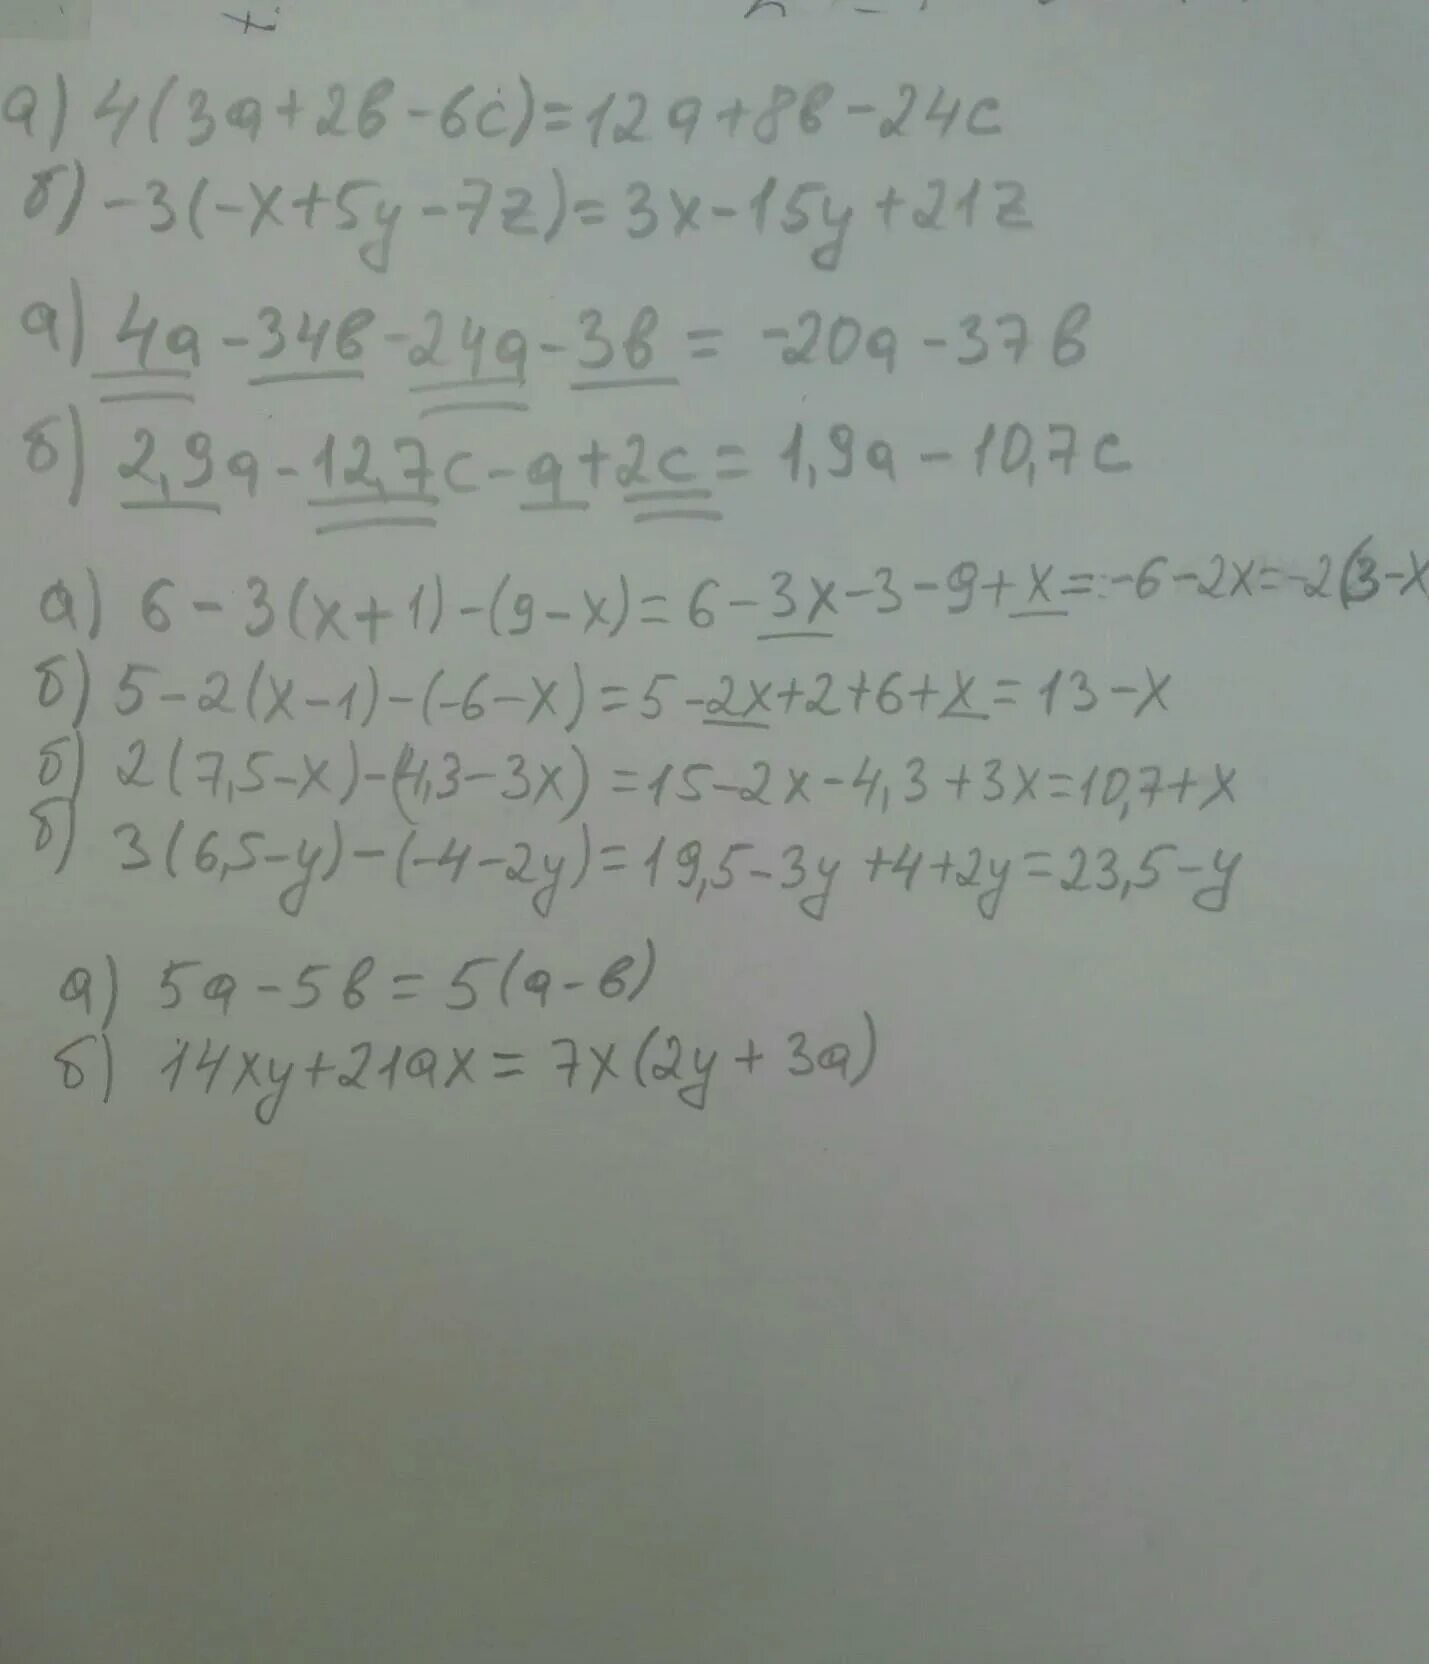 а) 4(3a+2b-6c)=12a+8b-24c
б) -3(-x+5y-7z)=3x-15y+21z
а) 4a-34b-24a-3b = -20a-37b
б) 2,9a-12,7c-a+2c=1,9a-10,7c
а) 6-3(x+1)-(9-x)=6-3x-3-9+x=-6-2x=-2(3-x
б) 5-2(x-1)-(-6-x)=5-2x+2+6+x=13-x
б) 2(7,5-x)-(4,3-3x)=15-2x-4,3+3x=10,7+x
б) 3(6,5-y)-(-4-2y)=19,5-3y+4+2y=23,5-y
а) 5a-5b=5(a-b)
б) 14xy+21ax=7x(2y+3a)